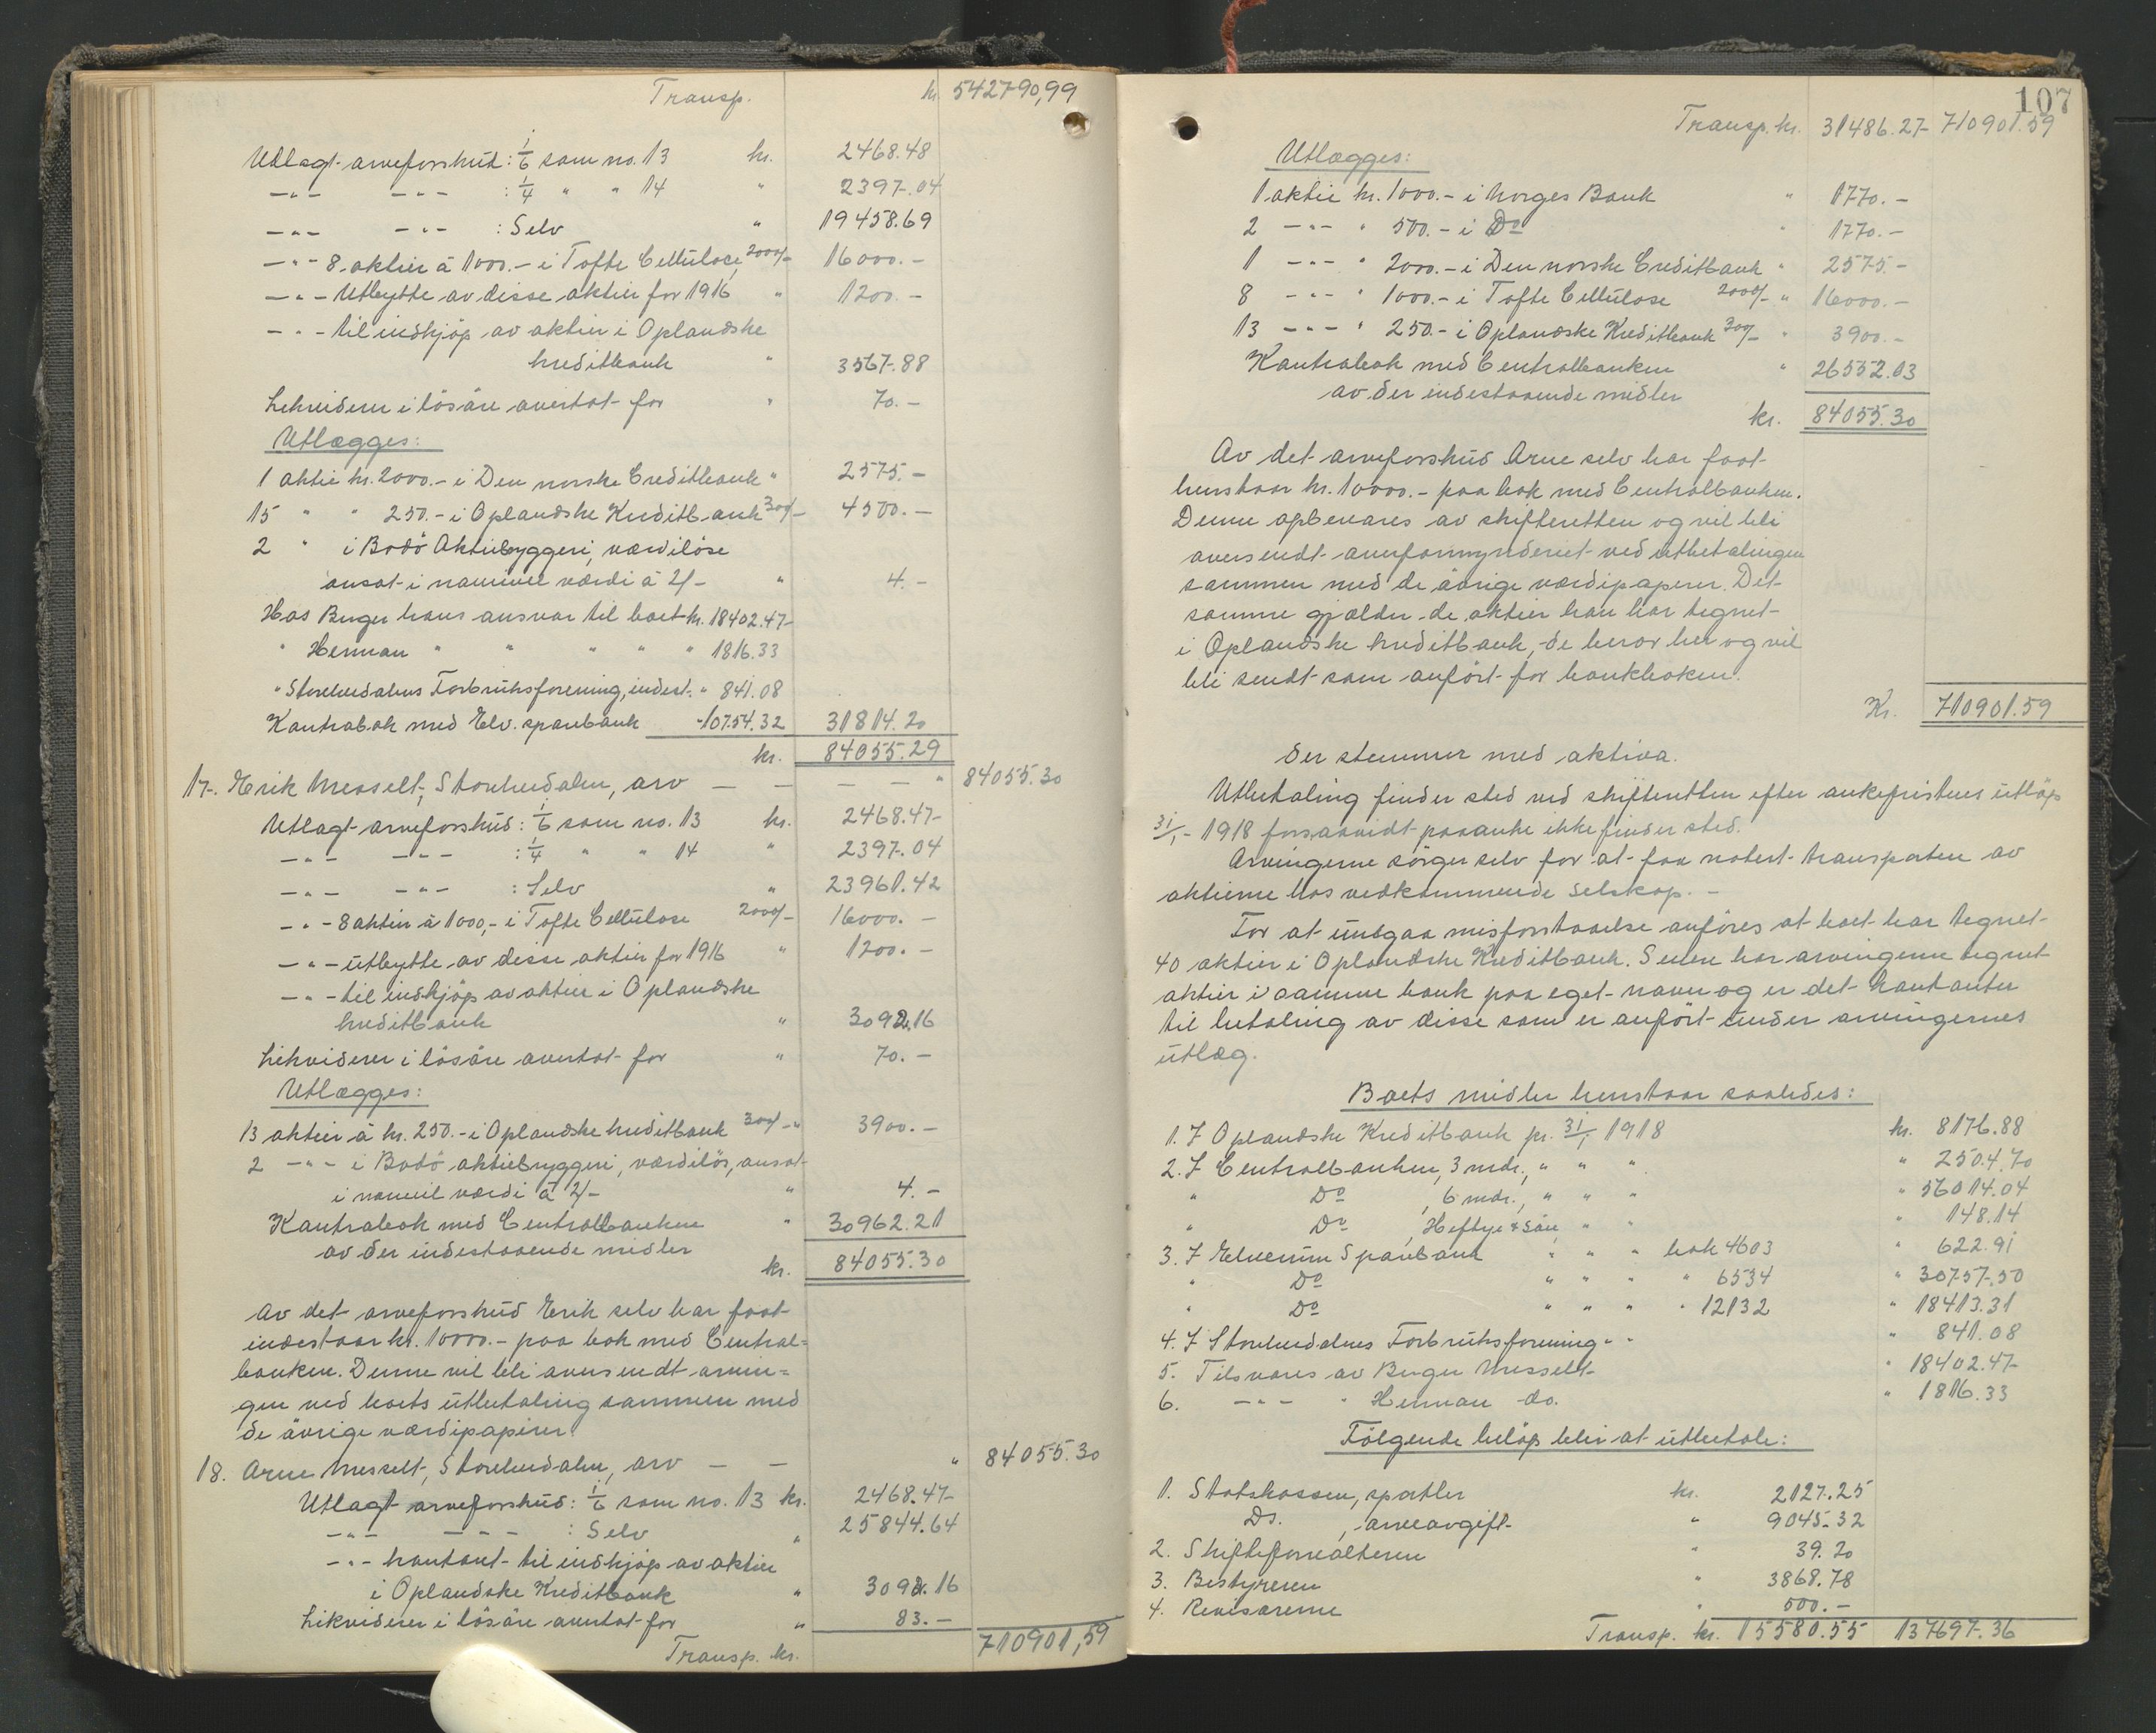 Transp. kr. 542790,99
Utlagt arveforskud: 1/6 som no. 13 kr. 2468.48
-"- -"- : 1/4 " " 14 " 2397.04
-"- -"- : Selv " 19458.69
-"- 8 aktier à 1000.- i Tofte Cellulose, 2000/- 16000.-
-"- Utbytte av disse aktier for 1916 " 1200.-
-"- til indkjøp av aktier i Oplandske
kreditbank " 3567.88
Likviderer i løsøre overtat for " 70.-
Utlægges:
1 aktie kr. 2000.- i Den norske Creditbank " 2575.-
15 " " 250.- i Oplandske Kreditbank 300/- 4500.-
2 " i Bodö Aktiebryggeri, værdiløse
ansat i nominel værdi à 2/- " 4.-
Hos Birger hans ansvar til boet kr. 18402.47
" Herman " " " " " 1816.33
" Storelvdalens Forbruksforening, indest. " 841.08
Kontrabok med Elv. sparebank " 10754.32 31814.20
kr. 84055.29
17. Erik Messelt, Storelvdalen, arv - - - - " 84055.30
Utlagt arveforskud: 1/6 som no. 13 kr. 2468.47
-"- -"- : 1/4 " " 14 " 2397.04
-"- -"- : Selv " 23961.42
-"- 8 aktier à 1000,- i Tofte Cellulose 2000/- 16000.-
-"- utbytte av disse aktier for 1916 " 1200.-
-"- til indkjøp av aktier i Oplandske
kreditbank " 3092.16
Likviderer i løsøre overtat for " 70.-
Utlægges:
13 aktier à kr. 250.- i Oplandske kreditbank 300/- " 3900.-
2 -"- i Bodö aktiebryggeri, værdiløs, ansat
i nominel værdi à 2/- " 4.-
Kontrabok med Centralbanken " 30962.21
av der indestaaende midler
kr. 84055.30
Av det arveforskud Erik selv har faat
indestaar kr. 10000.- paa bok med Central=
banken. Denne vil bli oversendt arvin=
gen ved boets utbetaling sammen med
de øvrige værdipapirer.
18. Arne Messelt, Storelvdalen, arv - - " 84055.30
Utlagt arveforskud: 1/6 som no. 13 kr. 2468.47
-"- -"- : Selv " 25844.64
-"- kontant til indkjøp av aktier
i Oplandske Kreditbank " 3092.16
Likviderer i løsøre overtat for " 83.-
Transp. kr. 710901,59
107
Transp. kr. 31486.27 710901.59
Utlægges:
1 aktie kr. 1000.- i Norges Bank " 1770.-
2 -"- " 500.- i Do " 1770.-
1 -"- " 2000.- i Den norske Creditbank " 2575.-
8 -"- " 1000.- i Tofte Cellulose 2000/- " 16000.-
13 -"- " 250.- i Oplandske Kreditbank 300/- " 3900.-
Kontrabok med Centralbanken " 26552.03
av der indestaaende midler
kr. 84055.30
Av det arveforskud Arne selv har faat
henstaar kr. 10000.- paa bok med Centralbanken.
Denne opbevares av skifteretten og vil bli
oversendt overformynderiet ved utbetalingen
sammen med de øvrige værdipapirer. Det
samme gjælder de aktier han har tegnet
i Oplandske kreditbank, de beror her og vil
bli sendt som anført for bankboken.
Kr. 710901.59
der stemmer med aktiva.
Utbetaling finder sted ved skifteretten efter ankefristens utløp
31/1 - 1918 forsaavidt paaanke ikke finder sted.
Arvingerne sørger selv for at faa notert transporten av
aktierne hos vedkommende selskap. -
For at undgaa misforstaaelse anføres at boet har tegnet
40 aktier i Oplandske Kreditbank. Senere har arvingerne tegnet
aktier i samme bank paa eget navn og er det kontanter
til betaling av disse som er anført under arvingernes
utlæg.
Boets midler henstaar saaledes:
1. I Oplandske Kreditbank pr. 31/1 1918 kr. 8176.88
2. I Centralbanken, 3 mdr., " " " " 2504.70
" Do , 6 mdr., " " " " 56014.04
" Do , Heftye & Søn, " " " 148.14
3. I Elverum Sparebank " " " bok 4603 " 622.91
" Do " " " " 6534 " 30757.50
" Do " " " " 12132 " 18413.31
4. I Storelvdalens Forbruksforening " " " 841.08
5. Tilsvares av Birger Messelt " 18402.47
6. -"- " Herman do. " 1816.33
Følgende beløp blir at utbetale:
1. Statskassen, sportler kr. 2127.25
Do. , arveavgift " 9045.32
2. Skifteforvalteren " 39.20
3. Bestyreren " 3868.78
4. Revisorerne " 500.-
Transp. kr. 15580.55 137697.36